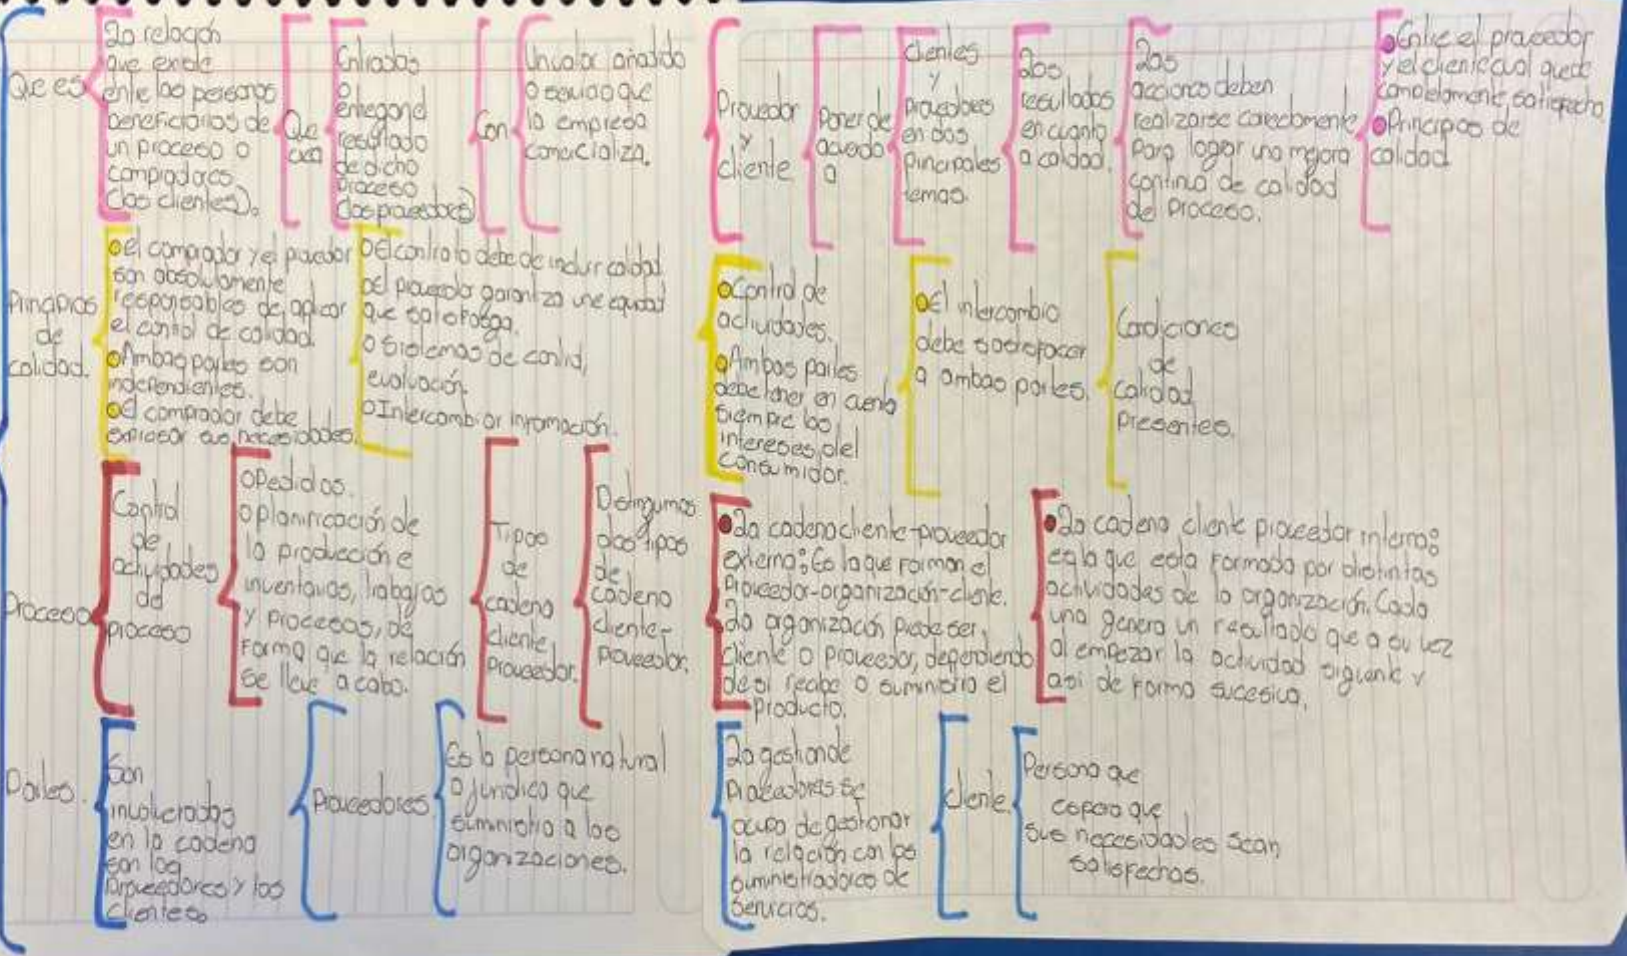 Que es
La relación
que existe
entre las personas
beneficiarias de
un proceso o
compradores
(los clientes).
Que
crea
Entradas
o
entregand
resultado
de dicho
proceso
(los proveedores)
Con
Un valor añadido
o servicio que
la empresa
comercializa.
Proveedor
y
cliente
Poner de
acuerdo
a
clientes
y
proveedores
en dos
principales
temas.
Los
resultados
en cuanto
a calidad.
Las
acciones deben
realizarse correctamente
para lograr una mejora
continua de calidad
del proceso.
Entre el proveedor
y el cliente cual quede
completamente satisfecho
Principios de
calidad
Principios
de
calidad.
El comprador y el proveedor
son absolutamente
responsables de aplicar
el control de calidad.
Ambas partes son
independientes.
El comprador debe
expresar sus necesidades.
El contrato debe de incluir calidad
El proveedor garantiza una
que satisfaga.
Sistemas de
evaluación.
Intercambiar información.
Control de
actividades.
Ambas partes
debe tener en cuenta
siempre los
intereses del
consumidor.
El intercambio
debe satisfacer
a ambas partes.
Condiciones
de
calidad
presentes.
Proceso
Control
de
actividades
del
proceso
Pedidos.
planificación de
la producción e
inventarios, trabajos
y procesos, de
forma que la relación
se lleve a cabo.
Tipos
de
cadena
cliente
proveedor.
Distinguimos
dos tipos
de
cadena
cliente-
proveedor.
La cadena cliente-proveedor
externa: Es la que forman el
Proveedor-organización-cliente.
La organización puede ser
cliente o proveedor, dependiendo
de si recibe o suministra el
producto.
La cadena cliente proveedor interna:
es la que esta formada por distintas
actividades de la organización. Cada
una genera un resultado que a su vez
al empezar la actividad siguiente y
asi de forma sucesiva.
Partes.
Son
involucradas
en la cadena
son los
proveedores y los
clientes
Proveedores
Es la persona natural
o jurídica que
suministra a las
organizaciones.
La gestion de
Proveedores se
ocupa de gestionar
la relación con los
suministradores de
servicios.
cliente.
Persona que
espera que
sus necesidades sean
satisfechas.